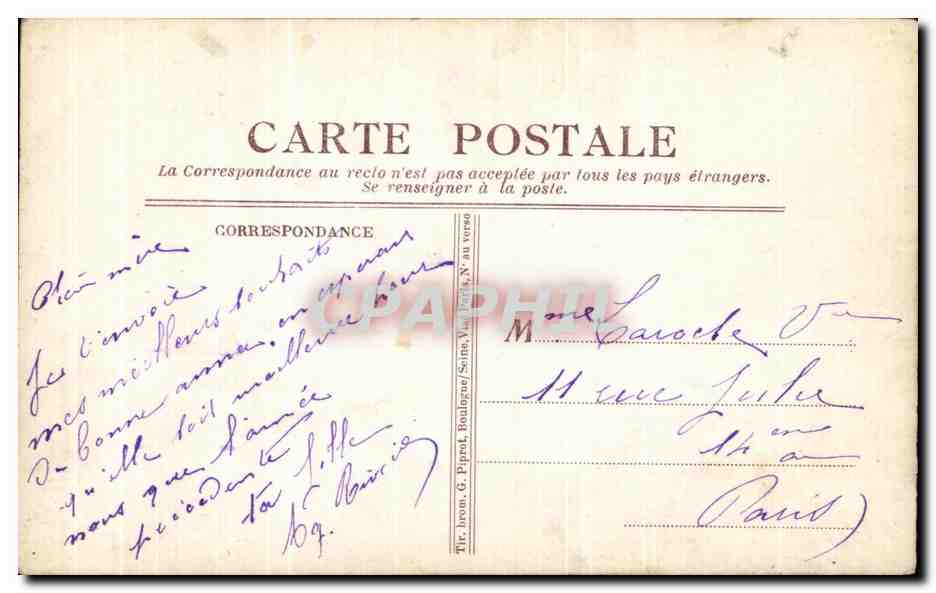 CARTE POSTALE
La Correspondance au recto n'est pas acceptée par tous les pays étrangers.
Se renseigner à la poste.
CORRESPONDANCE
mère
Je t'envoie
mes meilleurs souhaits
de bonne année, en espérant
qu'elle soit meilleure pour
nous que l'année
précédente
ta fille
Tir. brom. G. Piprot, Boulogne/Seine, Via Paris, N° au verso
Mme Laroche Ve
11 rue Julie
14eme
Paris
CPAPHIL